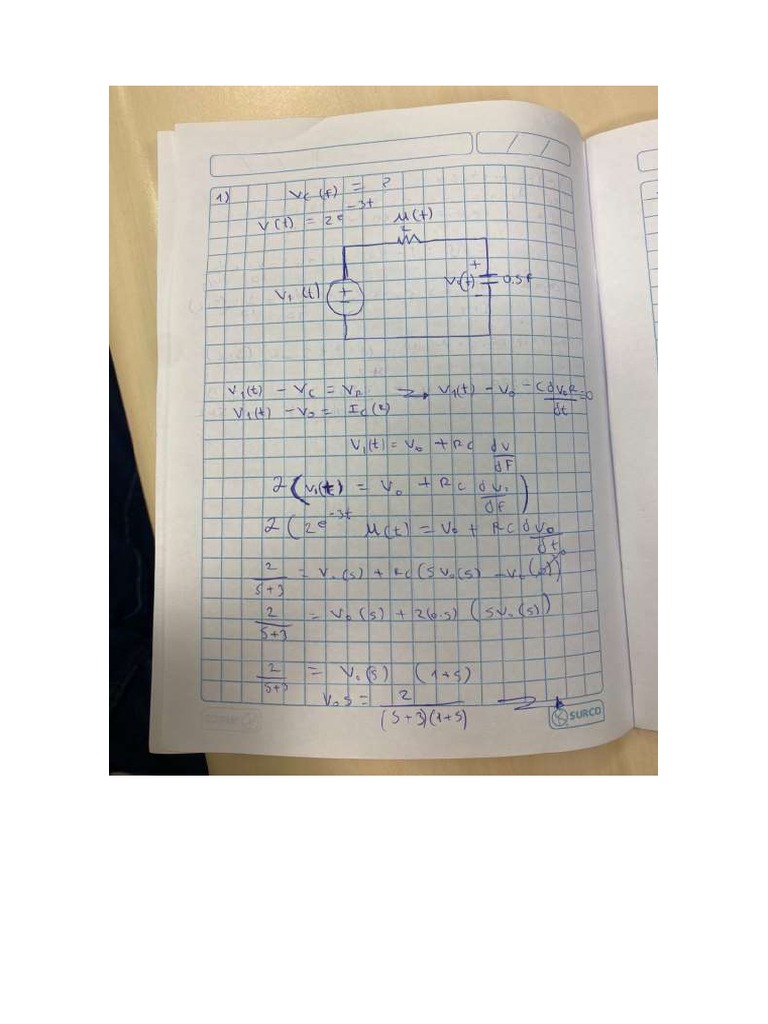 1) Vc(t) = ?
V(t) = 2e^-3t μ(t)
2
V1(t) + - V0(t) + - 0.5F
V1(t) - Vc = VR → V1(t) - V0 - C dV0R/dt = 0
V1(t) - V0 = Ic(2)
V1(t) = V0 + RC dV/dt
2(V1(t) = V0 + RC dV0/dt)
2(2e^-3t μ(t) = V0 + RC dV0/dt
2/(s+3) = V0(s) + RC(sV0(s) - V0(0))
2/(s+3) = V0(s) + 2(0.5)(sV0(s))
2/(s+3) = V0(s) (1+s)
V0s = 2/((s+3)(1+s)) →
SURCO